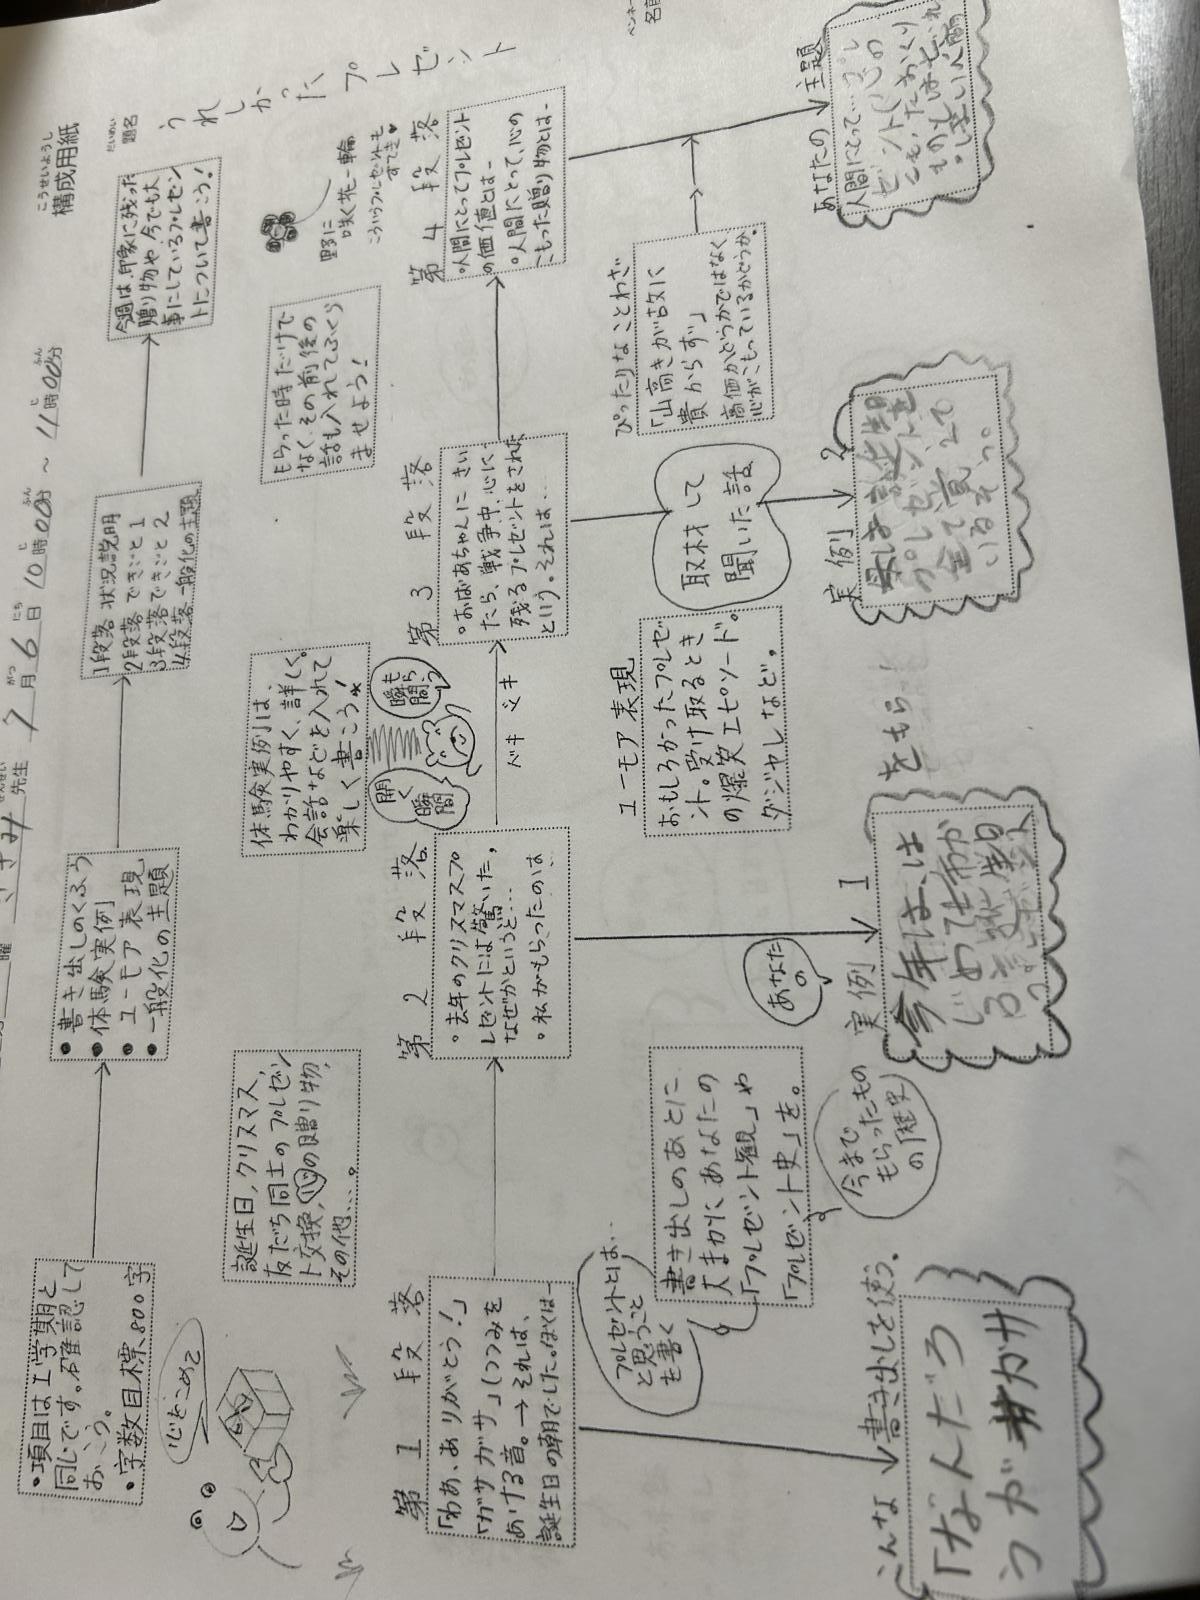 構成用紙
こうせいようし
題名
だいめい
うれしかったプレゼント
7月6日 10時00分～11時00分
先生
・項目は1学期と
同じです。確認して
おこう。
・字数目標800字
・書き出しのくふう
・体験実例
・ユーモア表現
・一般化の主題
1段落 状況説明
2段落 できごと1
3段落 できごと2
4段落 一般化の主題
今週は、印象に残った
贈り物や、今でも大
事にしているプレゼン
トについて書こう！
心をこめて
誕生日、クリスマス、
友だち同士のプレゼン
ト交換、心の贈り物、
その他…。
体験実例は、
わかりやすく、詳しく。
会話などを入れて
楽しく書こう！
もらった時だけで
なく、その前後の
話も入れてふくら
ませよう！
野に
咲く花一輪
こういうプレゼントも
すてき♥
第1段落
「わあ、ありがとう！」
「ガサガサ」（つつみを
あける音。→それは、
誕生日の朝でした。ぼくは―
第2段落
・去年のクリスマスプ
レゼントには驚いた。
なぜかというと…
・私がもらったのは…
開く
瞬間
瞬間
ドキ
ドキ
第3段落
・おばあちゃんにきい
たら、戦争中、心に
残るプレゼントをされた
という。それは…
第4段落
・人間にとってプレゼント
の価値とは―
・人間にとって、心の
こもった贈り物とは―
プレゼントとは…
と思うこと
を書く
書き出しのあとに
大まかにあなたの
「プレゼント観」や
「プレゼント史」を。
今まで
もらったもの
の「歴史」
ユーモア表現
おもしろかったプレゼ
ント。受け取るとき
の爆笑エピソード。
ダジャレなど。
取材して
聞いた話
ぴったりなことわざ
「山高きが故に
貴からず」
高価かどうかではなく
心がこもっているかどうか。
こんな書き出しを使う。
「なんだろ
うガサガサ
あなたの
実例1
今年は、は
じめて
実例2
母は誕生日
プレゼントを
全て覚えて
いるそう。
あなたの主題
人間にとって…プレ
ゼントは